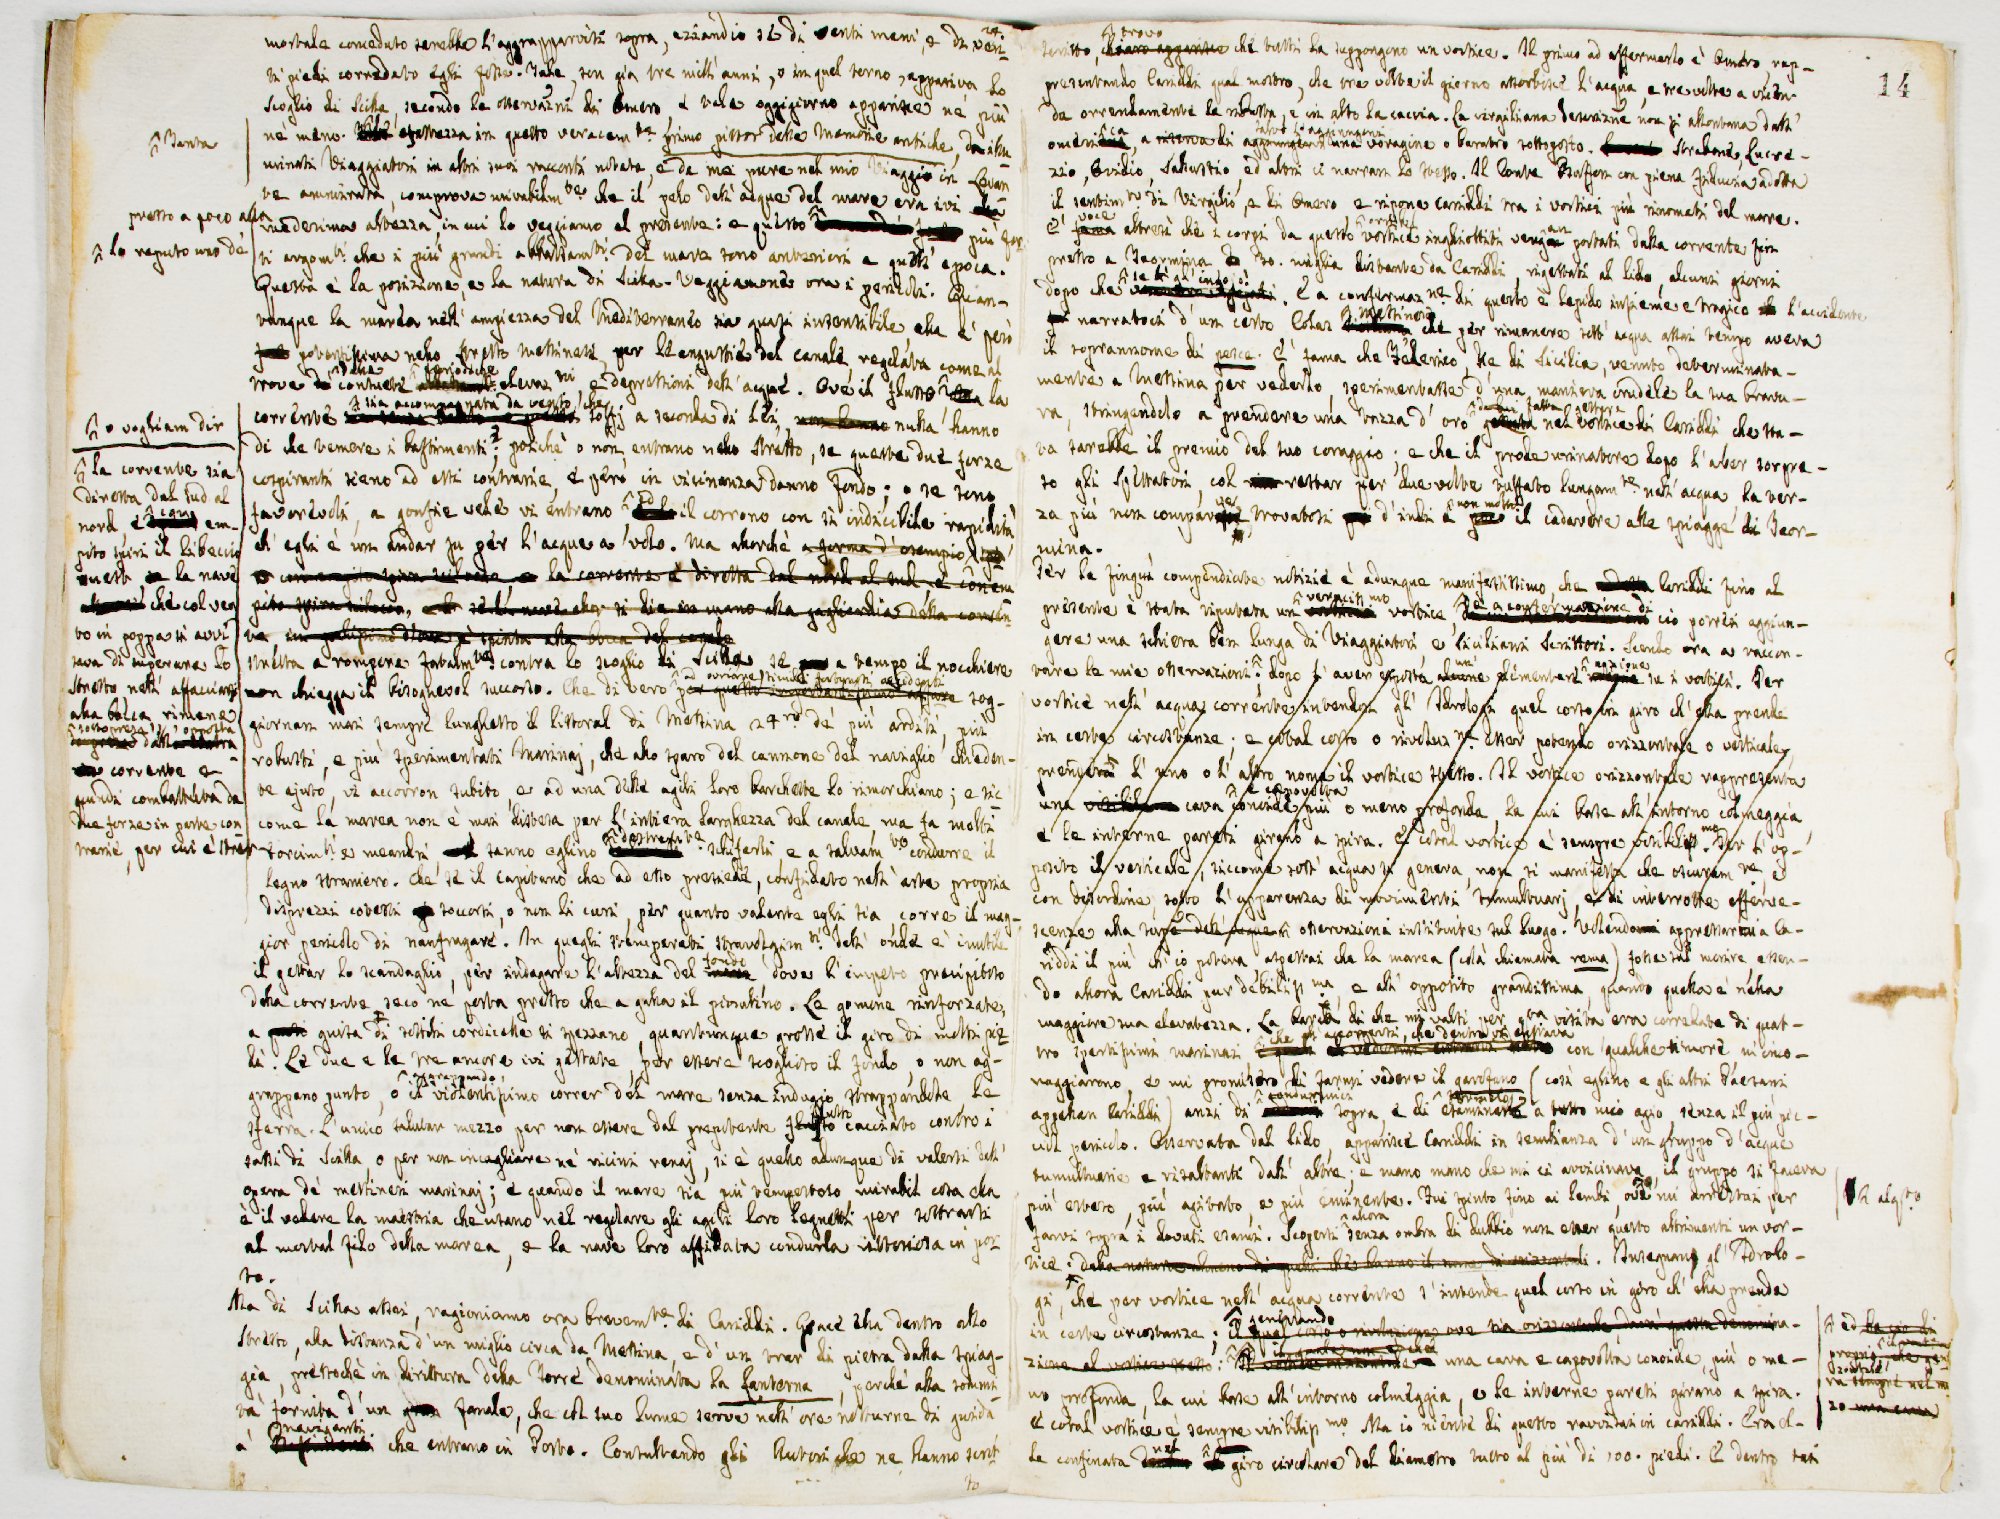 mortale conceduto sarebbe l'aggrapparvisi sopra, eziandio se di venti mani, e di ven-
ti piedi corredato egli fosse. Tale, son già tre mill'anni, o in quel torno, appariva lo
Scoglio di Scilla, secondo le osservazni di Omero, e tale oggigiorno apparisce nè più
nè meno. esattezza in questo veracemte primo pittor delle memorie antiche, da illu-
minati Viaggiatori in altri suoi racconti notata, e da me pure nel mio Viaggio in Levan-
te ammirata, comprova mirabilmte che il pelo dell'acque del mare era ivi
medesima altezza, in cui lo veggiamo al presente: e questo più for-
ti argomti che i più grandi abbassamti del mare sono anteriori a quell'epoca.
Questa è la posizione, e la natura di Scilla. Veggiamone ora i pericoli. Quan-
tunque la marèa nell'ampiezza del Mediterraneo sia quasi insensibile ella è però
potentissima nello stretto Messinese per l'angustie del canale, regolata come al-
trove dalle consuete periodiche elevazni, e depressioni dell'acque. Ove il flusso la
corrente sia accompagnata da vento, che soffj a seconda di lei, nulla hanno
di che temere i bastimenti: poichè o non entrano nello stretto, se queste due forze
cospiranti sieno ad essi contrarie, e però in vicinanza danno fondo; o se sono
favorevoli, a gonfie vele vi entrano Ed il corrono con sì indicibile rapidità
ch'egli è un andar su per l'acque a volo. Ma allorchè a forma d'esempio
la corrente è diretta dal nord al sud e contem
se la nave che si die in mano alla gagliardia della corren
è spinta alla bocca del canale
stretta a rompere fatalmte contra lo scoglio di Scilla, se a tempo il nocchiere
non chiegga il bisognevol soccorso. Che di vero a ovviare simili funesti accidenti sog-
giornan mai sempre lunghesso il littoral di Messina 24ro de' più arditi, più
robusti, e più sperimentati Marinaj, che allo sparo del cannone del naviglio chieden-
te ajuto, vi accorron subito e ad una delle agili loro barchette lo rimorchiano; e sic-
come la marea non è mai distesa per l'intiera larghezza del canale, ma fa molti
torcimti e meandri, sanno eglino destramte schifarli, e a salvamto condurre il
legno straniero. Chè se il Capitano che ad esso presiede, confidato nell'arte propria
disprezzi cotesti soccorsi, o non li curi, per quanto valente egli sia, corre il mag-
gior pericolo di naufragare. In quegli stemperati stravolgimti dell'onde è inutile
il gettar lo scandaglio, per indagare l'altezza del fondo dove l'impeto precipitoso
della corrente seco ne porta presto che a galla il piombino. Le gomene rinforzate
a guisa di sottili cordicelle si spezzano, quantunque grosse il giro di molti pie-
di. Le due e le tre ancore ivi gettate, per essere scoglioso il fondo, o non ag-
grappano punto, o aggrappando, il violentissimo correr del mare senza indugio strappandole, le
sferra. L'unico salutar mezzo per non essere dal prepotente flusso cacciato contro i
sassi di Scilla, o per non incagliare ne' vicini renaj, si è quello adunque di valersi dell'
opera de' messinesi marinaj; e quando il mare sia più tempestoso, mirabil cosa ella
è il vedere la maestria che usano nel regolare gli agili loro legnetti per sottrarsi
al mortal filo della marea, e la nave loro affidata condurla vittoriosa in por-
to.
Ma di Scilla assai, ragioniamo ora brevemte di Cariddi. Giace ella dentro allo
stretto, alla distanza d'un miglio circa da Messina, e d'un trar di pietra dalla spiag-
gia, pressochè in dirittura della Torre denominata la Lanterna, perchè alla sommi-
tà fornita d'un fanale, che col suo lume serve nell'ore notturne di guida
a' naviganti che entrano in Porto. Consultando gli Autori che ne hanno scrit-
to
Tanta
presso a poco alla
lo reputo uno de'
o vogliam dir
la corrente sia
diretta dal sud al
nord e con em-
pito spiri il libeccio
questo la nave
che col ven
to in poppa si avvi-
sava di superare lo
stretto nell'affacciarsi
alla bocca, rimane
sorpresa dall'opposta
corrente e
quindi combattuta da
due forze in parte con-
trarie, per cui è stret
14
scritto, trovo che tutti la suppongono un vortice. Il primo ad affermarlo è Omero, rap-
presentando Cariddi qual mostro, che tre volte il giorno assorbisce l'acqua, e tre volte a vicen-
da orrendamente la ributta, e in alto la caccia. La virgiliana descrizne non si allontana dall'
omerica, a riserva di aggiungervi una voragine o baratro sottoposto. Strabone, Lucre-
zio, Ovidio, Sallustio, ed altri ci narran lo stesso. Il Conte Buffon con piena fiducia adotta
il sentimto di Virgilio, e di Omero e ripone Cariddi tra i vortici più rinomati del mare.
E' voce altresì che i corpi da questo vortice inghiottiti vengan portati dalla corrente fin
presso a Taormina 30. miglia distante da Cariddi, rigettati al lido, alcuni giorni
dopo che se gl' ingojò. E a confermazne di questo è lepido insieme e tragico l'accidente
narratoci d'un certo Colas Messinese, che per rimanere sott'acqua assai tempo aveva
il soprannome di pesce. E' fama che Federico, Re di Sicilia, venuto determinata-
mente a Messina per vederlo, sperimentasse d'una maniera crudele la sua bravu-
ra, stringendolo a prendere una tazza d'oro nel vortice di Cariddi che sta-
va sarebbe il premio del suo coraggio; e che il prode urinatore dopo l'aver sorpre-
so gli spettatori, col restar per due volte tuffato lungamte nell'acqua la ter-
za più non comparve, trovatosi d'indi a non molto il cadavere alle spiagge di Taor-
mina.
Per le finquì compendiate notizie è adunque manifestissimo, che Cariddi fino al
presente è stata riputata un veracissmo vortice, e a confermazione di ciò potrei aggiun-
gere una schiera ben lunga di Viaggiatori, e Siciliani Scrittori. Scendo ora a raccon-
tare le mie osservazioni: dopo l'aver esposta elementare nozione su i vortici. Per
vortice nell'acqua corrente intendon gl'Idrologi quel corso in giro ch'ella prende
in certe circostanze; e cotal corso o rivoluzne esser potendo orizzontale o verticale,
prenderà l'uno o l'altro nome il vortice stesso. Il vortice orizzontale rappresenta
una cava e capovolta conoide più o meno profonda, la cui base all'intorno colmeggia,
e le interne pareti girano a spira. E cotal vortice è sempre visibilissmo. Per l'op-
posito il verticale, siccome sott'acqua si genera, non si manifesta che oscuramte, e
con disordine, sotto l'apparenza di movimenti tumultuarj, e di interrotte efferve-
scenze alla superf. dell'acque. osservazioni instituite sul luogo. Volendo appressarmi a Ca-
riddi il più ch'io poteva, aspettai che la marea (colà chiamata rema) fosse sul morire essen-
do allora Cariddi pur debilissma, e all'opposito grandissima, quando quella è nella
maggiore sua elevatezza. La barca di che mi valsi per qta visita era corredata di quat-
tro spertissimi marinai che accortisi, che dentro vi entrava con qualche timore m'inco-
raggiarono, e mi promisero di farmi vedere il garofano (così eglino e gli altri Paesani
appellan Cariddi) anzi di condurmici sopra, e di esaminare a tutto mio agio senza il più pic-
col pericolo. Osservata dal lido, apparisce Cariddi in sembianza d'un gruppo d'acque
tumultuarie e risaltanti dall'altre; e mano mano che mi ci avvicinava, il gruppo si faceva
più esteso, più agitato, e più eminente. Fui spinto fino ai lembi, ove mi arrestai per
farvi sopra i dovuti esami. Scopersi allora senza ombra di dubbio non esser questo altrimenti un vor-
tice: della natura almeno di quelli che hanno il nome di orizzontali. Insegnano gl'Idrolo-
gi, che per vortice nell'acqua corrente s'intende quel corso in giro ch'ella prende
in certe circostanze; generando il qual corso o rivoluzione ove sia orizzontale, darà questa denomina-
zione al vortice stesso: una cava e capovolta conoide, più o me-
no profonda, la cui base all'intorno colmeggia, e le interne pareti girano a spira.
E cotal vortice è sempre visibilissmo. Ma io niente di questo ravvisai in Cariddi. Era el-
la confinata nel giro circolare del diametro tutto al più di 100. piedi. E dentro tai